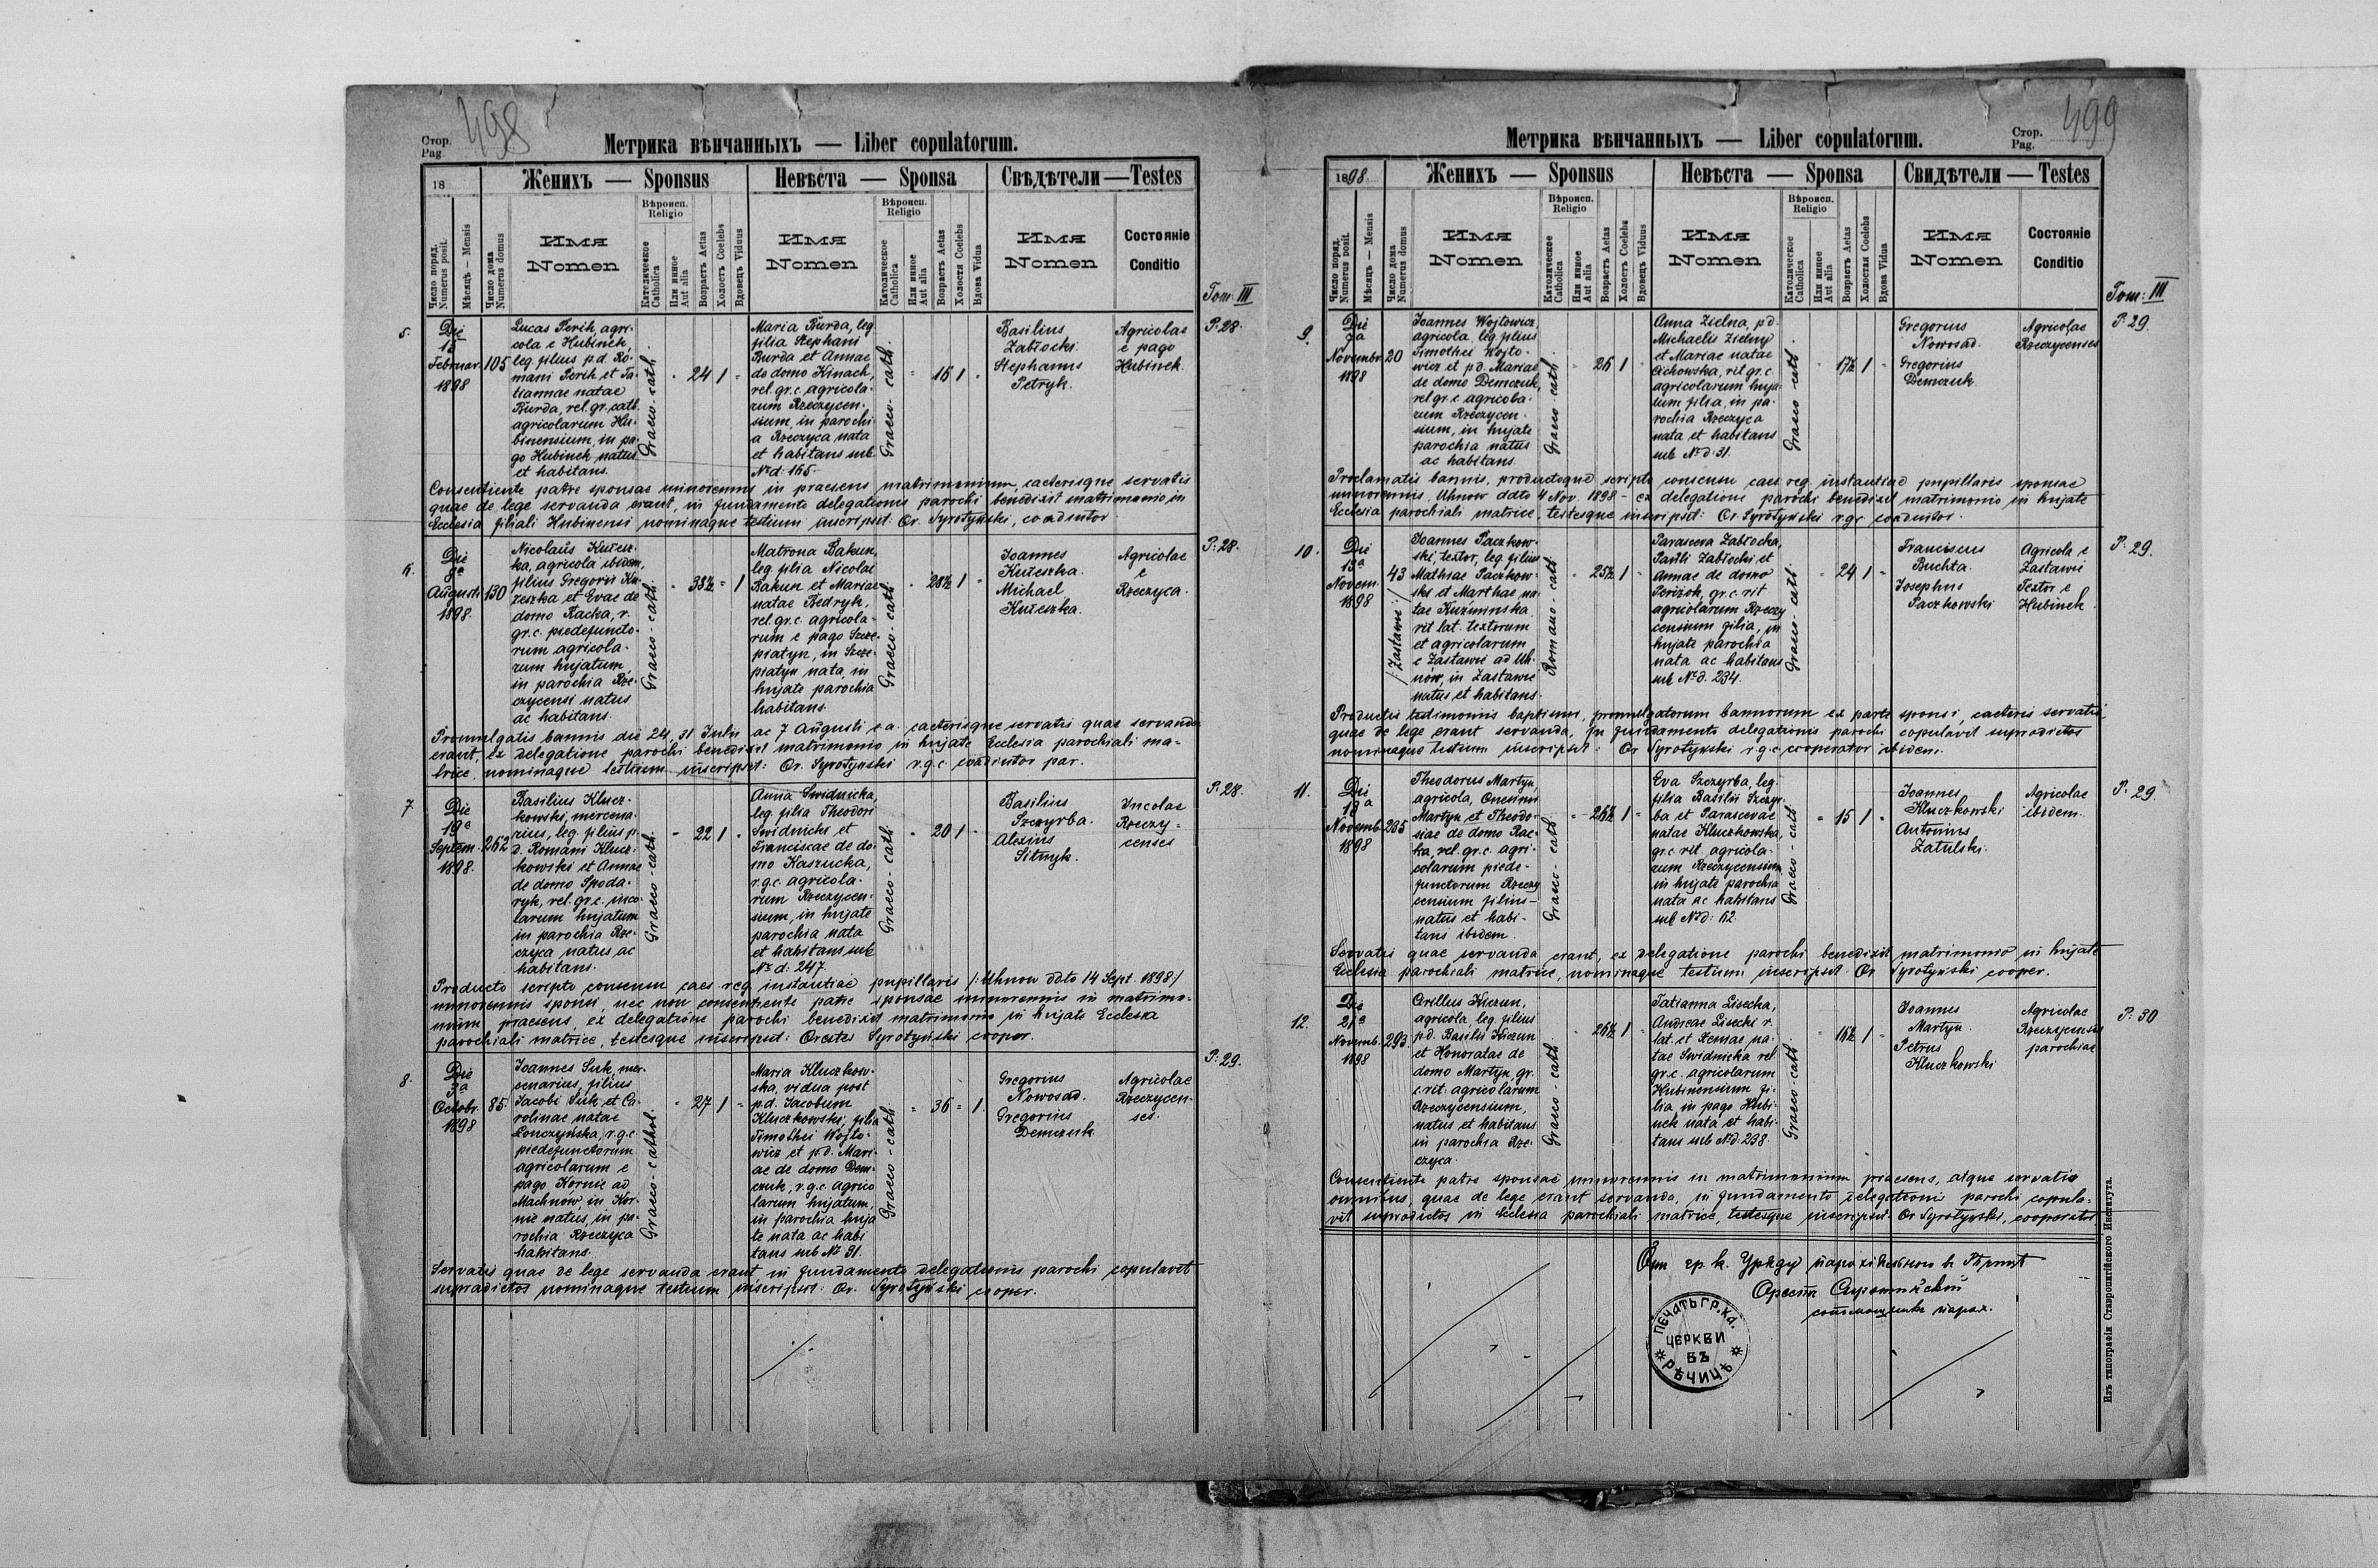 498
Стор.
Pag.
Метрика вѣнчанныхъ — Liber copulatorum.
18
Женихъ — Sponsus
Невѣста — Sponsa
Свѣдѣтели — Testes
Число поряд.
Numerus posit.
Мѣсяцъ — Mensis
Число дома
Numerus domus
Имя
Nomen
Вѣроисп.
Religio
Католическое
Catholica
Или инное
Aut alia
Возрастъ Aetas
Холостъ Coelebs
Вдовецъ Viduus
Имя
Nomen
Вѣроисп.
Religio
Католическое
Catholica
Или инное
Aut alia
Возрастъ Aetas
Холоста Coelebs
Вдова Vidua
Имя
Nomen
Состояніе
Conditio
Tom: III
5.
Die
15
Februar.
1898
105
Lucas Perih, agri-
cola e Hubinek,
leg. filius p.d. Ro-
mani Perih et Ta-
tiannae natae
Burda, rel. gr. cath.
agricolarum Hu-
binensium, in pa-
go Hubinek natus
et habitans.
Graeco-cath.
24 1
Maria Burda, leg.
filia Stephani
Burda et Annae
de domo Kinach,
rel. gr. c. agricola-
rum Rzeczycen-
sium, in parochi-
a Rzeczyca nata
et habitans sub
Nr. d: 165.
Graeco-cath.
16 1
Basilius
Zabłocki.
Stephanus
Petryk.
Agricolae
e pago
Hubinek.
P: 28.
Consentiente patre sponsae minorennis in praesens matrimonium, caeterisque servatis
quae de lege servanda erant, in fundamento delegationis parochi benedixit matrimonio in
Ecclesia filiali Hubinensi nominaque testium inscripsit: Or. Syrotyński, coadiutor.
6.
Die
9a
Augusti
1898.
130
Nicolaus Kułesz-
ka, agricola ibidem,
filius Gregorii Ku-
łeszka et Evae de
domo Racka, r.
gr. c. piedefuncto-
rum agricola-
rum hujatum,
in parochia Rze-
czycensi natus
ac habitans.
Graeco-cath.
38½ 1
Matrona Bakun,
leg. filia Nicolai
Bakun et Mariae
natae Bedryk,
rel. gr. c. agricola-
rum e pago Szcze-
piatyn, in Szcze-
piatyn nata, in
hujate parochia
habitans.
Graeco-cath.
28½ 1
Ioannes
Kułeszka.
Michael
Kułeszka.
Agricolae
e
Rzeczyca.
P: 28.
Promulgatis bannis die 24, 31 Julii ac 7 Augusti c. a. caeterisque servatis quae servanda
erant, ex delegatione parochi benedixit matrimonio in hujate Ecclesia parochiali ma-
trice, nominaque testium inscripsit: Or. Syrotyński r.g.c. coadiutor par.
7
Die
19a
Septem.
1898.
262
Basilius Klucz-
kowski, mercena-
rius, leg. filius p.
d. Romani Klucz-
kowski et Annae
de domo Spoda-
ryk, rel. gr. c. inco-
larum hujatum
in parochia Rze-
czyca natus ac
habitans.
Graeco-cath.
22 1
Anna Swidnicka,
leg. filia Theodori
Swidnicki et
Franciscae de do-
mo Kaszucka,
r.g.c. agricola-
rum Rzeczycen-
sium, in hujate
parochia nata
et habitans sub
Nr. d: 247.
Graeco-cath.
20 1
Basilius
Szczyrba.
Alexius
Sitnyk.
Incolae
Rzeczy-
censes
P: 28.
Producto scripto consensu caes. reg. instantiae pupillaris /: Uhnow ddto 14 Sept. 1898:/
minorennis sponsi, nec non consentiente patre sponsae minorennis in matrimo-
nium praesens, ex delegatione parochi benedixit matrimonio in hujate Ecclesia
parochiali matrice, testesque inscripsit: Orestes Syrotyński cooper.
8.
Die
3a
Octobr.
1898
85.
Ioannes Suk, mer-
cenarius, filius
Iacobi Suk et Ca-
rolinae natae
Lonczyńska, r.g.c.
piedefunctorum
agricolarum e
pago Kornie ad
Machnów, in Kor-
nie natus, in pa-
rochia Rzeczyca
habitans.
Graeco-cathol.
27 1
Maria Kluczkow-
ska, vidua post
p.d. Iacobum
Kluczkowski, filia
Timothei Wojto-
wicz et p.d. Mari-
ae de domo Dem-
czuk, r.g.c. agrico
larum hujatum,
in parochia huja
te nata ac habi
tans sub Nr 91.
Graeco-cath
36 1.
Gregorius
Nowosad.
Gregorius
Demczuk.
Agricolae
Rzeczycen-
ses.
P: 29.
Servatis quae de lege servanda erant in fundamento delegationis parochi copulavit
supradictos nominaque testium inscripsit: Or. Syrotyński cooper.
499
Стор.
Pag.
Метрика вѣнчанныхъ — Liber copulatorum.
1898.
Женихъ — Sponsus
Невѣста — Sponsa
Свидѣтели — Testes
Число поряд.
Numerus posit.
Мѣсяцъ — Mensis
Число дома
Numerus domus
Имя
Nomen
Вѣроисп.
Religio
Католическое
Catholica
Или инное
Aut alia
Возрастъ Aetas
Холостъ Coelebs
Вдовецъ Viduus
Имя
Nomen
Вѣроисп.
Religio
Католическое
Catholica
Или инное
Aut alia
Возрастъ Aetas
Холостая Coelebs
Вдова Vidua
Имя
Nomen
Состояніе
Conditio
Tom: III
9.
Die
9a
Novembr.
1898
20
Ioannes Wojtowicz,
agricola, leg. filius
Timothei Wojto-
wicz et p.d. Mariae
de domo Demczuk,
rel. gr. c. agricola-
rum Rzeczycen-
sium, in hujate
parochia natus
ac habitans.
Graeco-cath.
26 1
Anna Zielna, p.d.
Michaelis Zielny
et Mariae natae
Cichowska, rit. gr. c.
agricolarum huja-
tum filia, in pa-
rochia Rzeczyca
nata et habitans
sub Nr. d: 31.
Graeco cath.
17½ 1
Gregorius
Nowosad.
Gregorius
Demczuk.
Agricolae
Rzeczycenses
P: 29.
Proclamatis bannis, productoque scripto consensu caes. reg. instantiae pupillaris sponsae
minorennis, Uhnow ddto 4 Nov. 1898 - ex delegatione parochi benedixit matrimonio in hujate
Ecclesia parochiali matrice, testesque inscripsit: Or. Syrotyński r.g.c. coadiutor.
10.
Die
13a
Novem.
1898
43
/: Zastawie :/
Ioannes Paczkow-
ski, textor, leg. filius
Mathiae Paczkow-
ski et Marthae na-
tae Kuzminska
rit. lat. textorum
et agricolarum
e Zastawie ad Uh-
nów, in Zastawie
natus et habitans.
Romano-cath.
25½ 1
Parasceva Zabłocka,
Pauli Zabłocki et
Annae de domo
Perizok, gr. c. rit.
agricolarum Rzeczy
censium filia, in
hujate parochia
nata ac habitans
sub Nr. d. 234.
Graeco-cath.
24 1
Franciscus
Buchta.
Iosephus
Paczkowski
Agricola e
Zastawie
Textor e
Hubinek.
P: 29.
Productis testimoniis baptismi, promulgatorum bannorum ex parte sponsi, caeteris servatis,
quae de lege erant servanda, in fundamento delegationis parochi copulavit supradictos
nominaque testium inscripsit: Or. Syrotyński r.g.c. cooperator ibidem.
11.
Die
13a
Novemb.
1898
235
Theodorus Martyn,
agricola, Onesimi
Martyn et Theodo-
siae de domo Rac-
ka, rel. gr. c. agri-
colarum piede-
functorum Rzeczy
censium filius-
natus et habi-
tans ibidem.
Graeco-cath
26½ 1
Eva Szczyrba, leg.
filia Basilii Szczyr-
ba et Parascevae
natae Kluczkowska,
gr. c. rit. agricola-
rum Rzeczycensium
in hujate parochia
nata ac habitans
sub Nr. d: 62.
Graeco-cath
15 1
Ioannes
Kluczkowski
Antonius
Zatulski.
Agricolae
ibidem.
P: 29.
Servatis quae servanda erant, ex delegatione parochi benedixit matrimonio in hujate
Ecclesia parochiali matrice, nominaque testium inscripsit: Or. Syrotyński cooper.
12.
Die
21a
Novemb.
1898
293
Cyrillus Kiczun,
agricola, leg. filius
p.d. Basilii Kiczun
et Honoratae de
domo Martyn, gr.
c. rit. agricolarum
Rzeczycensium,
natus et habitans
in parochia Rze-
czyca.
Graeco-cath.
26½ 1
Tatianna Lisecka,
Andreae Lisecki r.
lat. et Xeniae na-
tae Swidnicka rel.
gr. c. agricolarum
Hubinensium fi-
lia, in pago Hubi-
nek nata et habi-
tans sub Nd: 238.
Graeco-cath.
16½ 1
Ioannes
Martyn.
Petrus
Kluczkowski
Agricolae
Rzeczycensis
parochiae
P: 30
Consentiente patre sponsae minorennis in matrimonium praesens, atque servatis
omnibus, quae de lege erant servanda, in fundamento delegationis parochi copula-
vit supradictos in Ecclesia parochiali matrice, testesque inscripsit. Or. Syrotyński, cooperator
От гр. к. Уряду парохіяльного в
Орестъ Сиротиńскій
сотрудник парох.
ПЕЧАТЬ ГР. КА.
ЦЕРКВИ
ВЪ
РѢЧИЦѢ
Изъ типографіи Ставропигійского Института.